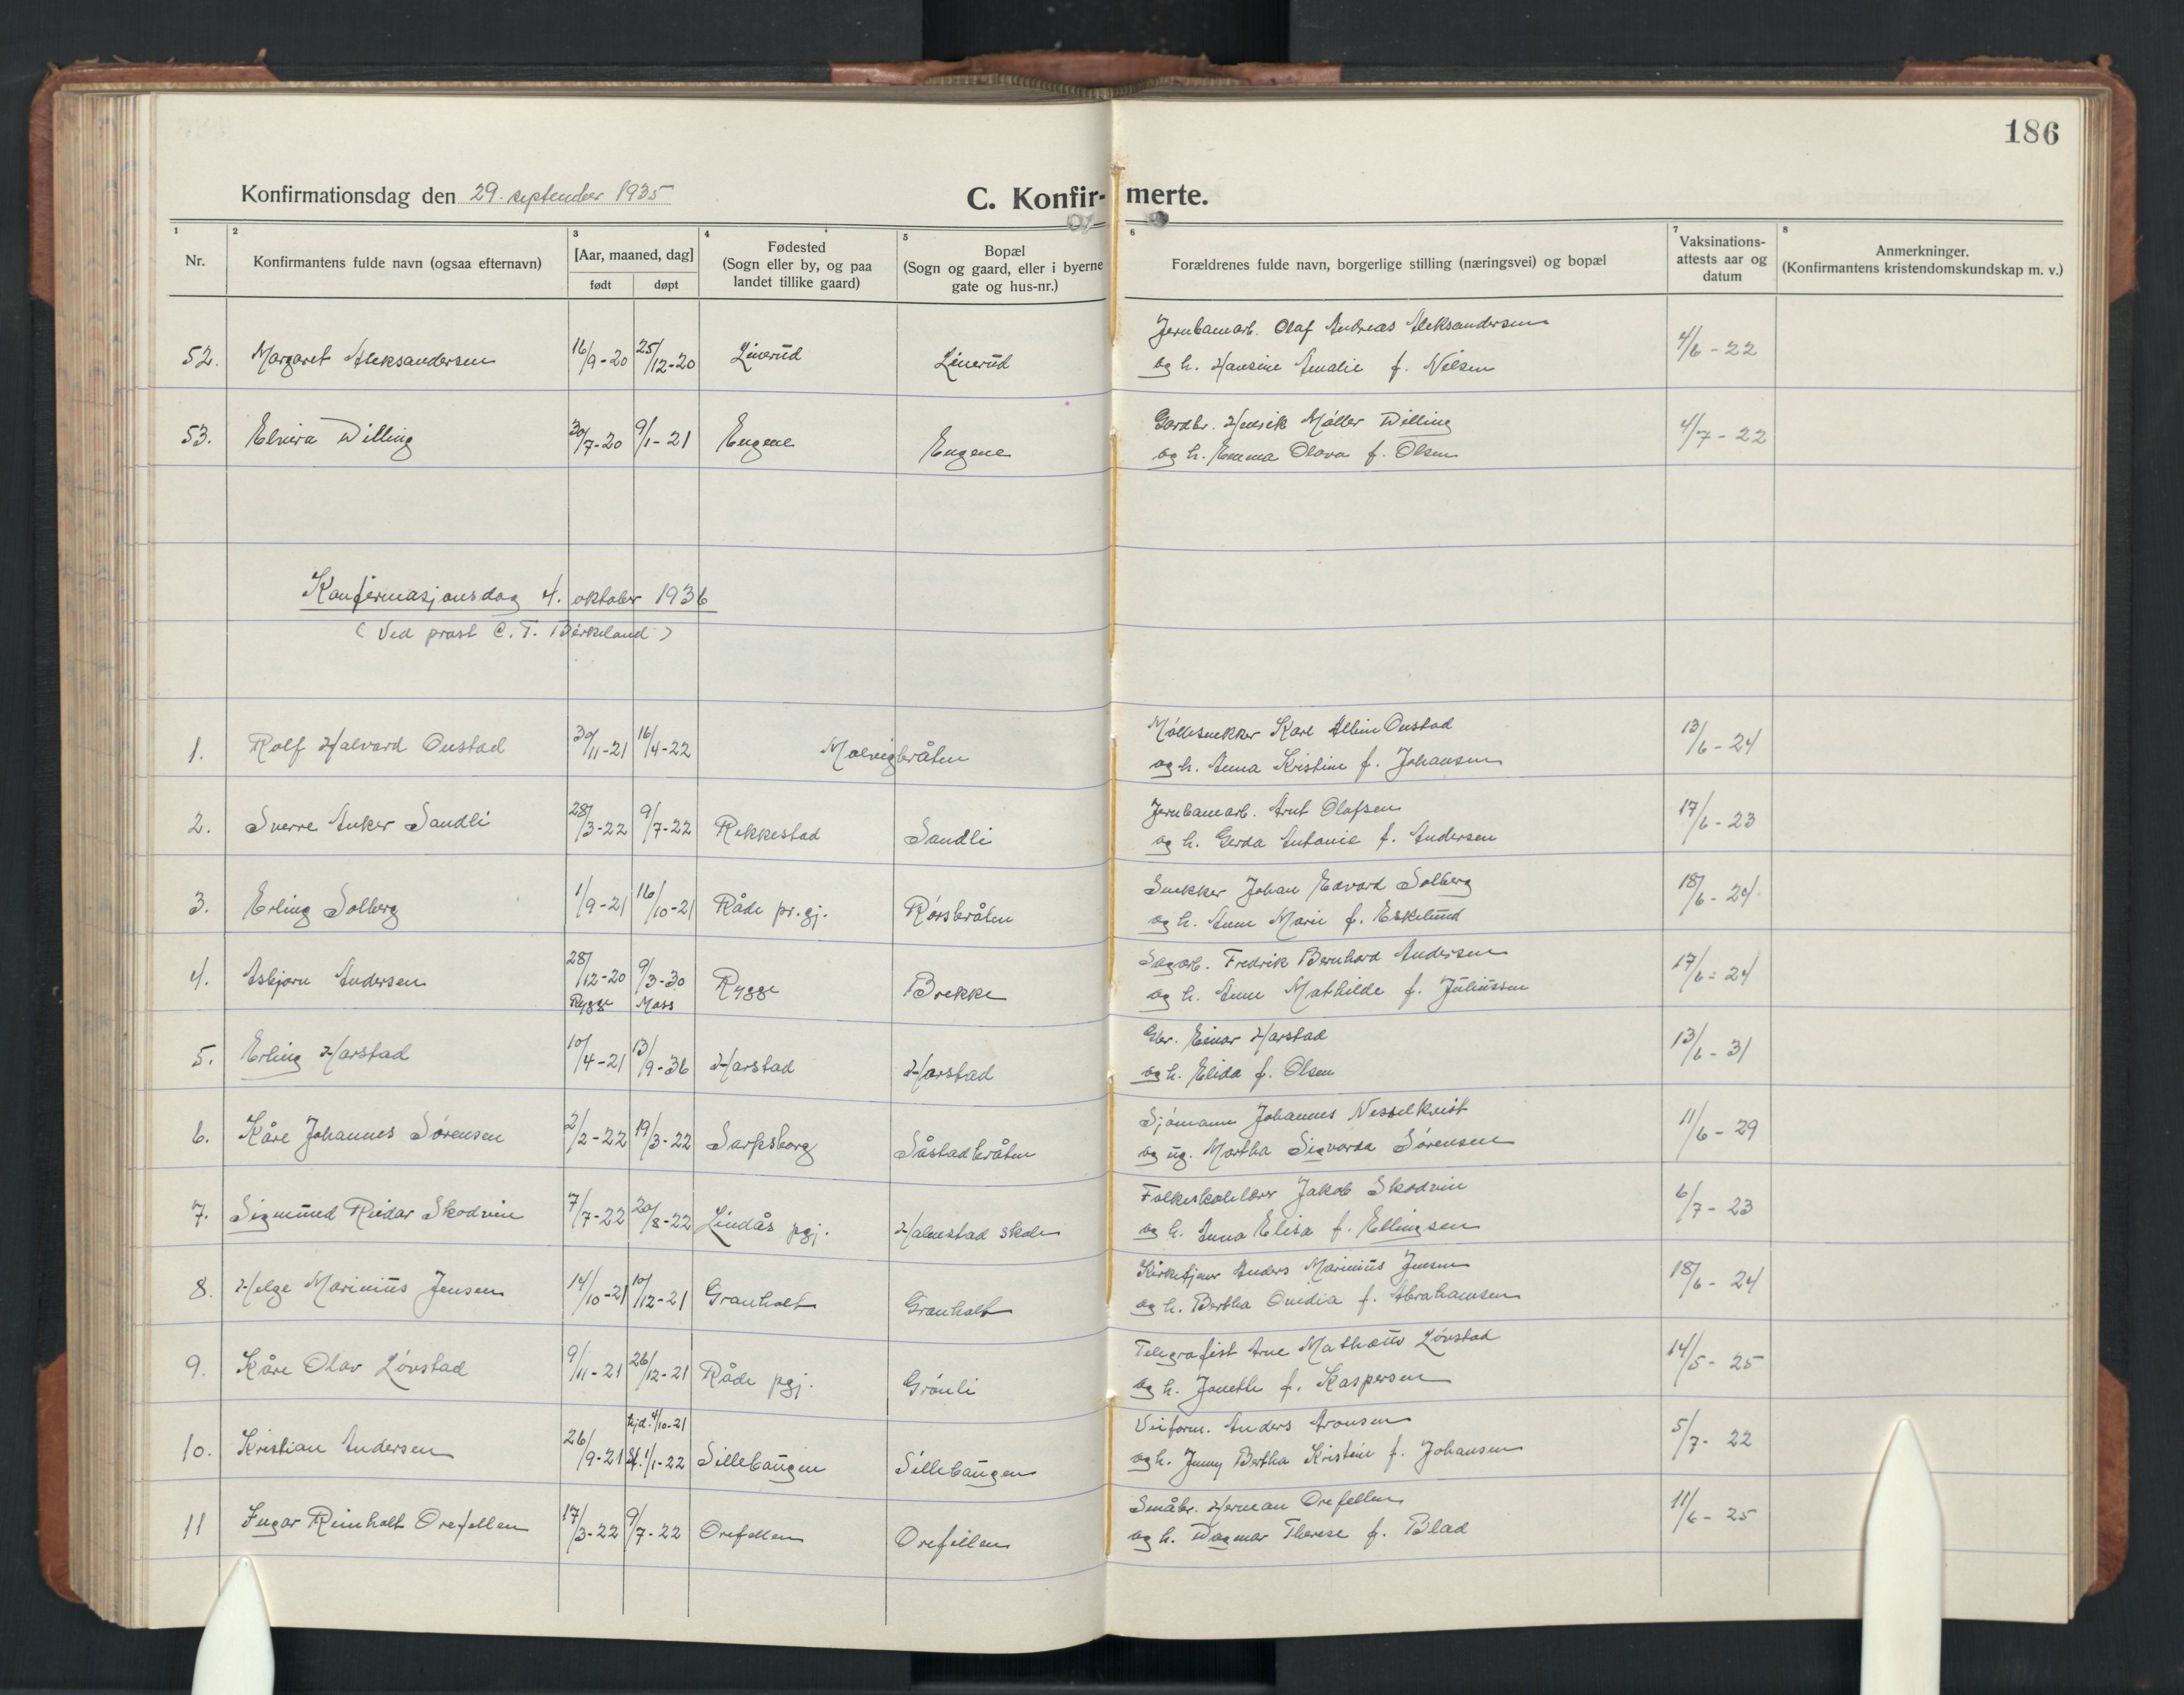 186
Konfirmationsdag den 29. september 1935
C. Konfir- merte.
1 2 3 4 5 6 7 8
Nr.
Konfirmantens fulde navn (ogsaa efternavn)
[Aar, maaned, dag]
født døpt
Fødested
(Sogn eller by, og paa
landet tillike gaard)
Bopæl
(Sogn og gaard, eller i byerne
gate og hus-nr.)
Forældrenes fulde navn, borgerlige stilling (næringsvei) og bopæl
Vaksinations-
attests aar og
datum
Anmerkninger.
(Konfirmantens kristendomskundskap m. v.)
Jernbanearb. Olaf Andreas Aleksandersen
52. Margaret Aleksandersen 16/9-20 25/12-20 Linerud Linerud 4/6-22
og h. Hansine Amalie f. Nilsen
Gardbr. Henrik Møller Willing
53. Elvira Willing 30/7-20 9/1-21 Eugene Eugene 4/7-22
og h. Emma Olava f. Olsen
Konfirmasjonsdag 4. oktober 1936
(Ved prost C. T. Birkeland)
Møllesnekker Karl Albin Onstad
1. Rolf Halvard Onstad 30/11-21 16/4-22 Malvigbråten 13/6-24
og h. Anna Kristine f. Johansen
Jernbanearb. Arnt Olafsen
2. Sverre Anker Sandli 28/3-22 9/7-22 Rakkestad Sandli 17/6-23
og h. Gerda Antonie f. Andersen
Snekker Johan Edvard Solberg
3. Erling Solberg 1/9-21 16/10-21 Råde pr.gj. Rørsbråten 18/6-24
og h. Anne Marie f. Eskelund
Sagarb. Fredrik Bernhard Andersen
4. Asbjørn Andersen 28/12-20 9/3-30 Rygge Brekke 17/6-24
Rygge Moss
og h. Anne Mathilde f. Juliussen
Gbr. Einar Harstad
5. Erling Harstad 10/4-21 13/9-36 Harstad Harstad 13/6-31
og h. Elida f. Olsen
Sjømann Johannes Nesselkvist
6. Kåre Johannes Sørensen 2/2-22 19/3-22 Sarpsborg Såstadbråten 11/6-29
og ug. Martha Sigvarda Sørensen
Folkeskolelærer Jakob Skodvin
7. Sigmund Reidar Skodvin 7/7-22 20/8-22 Lindås pgj. Halmstad skole 6/7-23
og h. Anna Elisa f. Ellingsen
Kirketjener Anders Marinius Jensen
8. Helge Marinius Jensen 14/10-21 10/12-21 Granholt Granholt 18/6-24
og h. Bertha Ovedia f. Abrahamsen
Telegrafist Arne Mathæus Løvstad
9. Kåre Olav Løvstad 9/11-21 26/12-21 Råde pgj. Grønli 14/5-25
og h. Janethe f. Kaspersen
hjd. 4/10-21
Veiform. Anders Aronsen
10. Kristian Andersen 26/9-21 St. 1/1-22 Sillebaugen Sillebaugen 5/7-22
og h. Jenny Bertha Kristine f. Johansen
Småbr. Herman Orefellen
11 Ingar Reinholt Orefellen 17/3-22 9/7-22 Orefellen Orefellen 11/6-25
og h. Dagmar Therese f. Blad